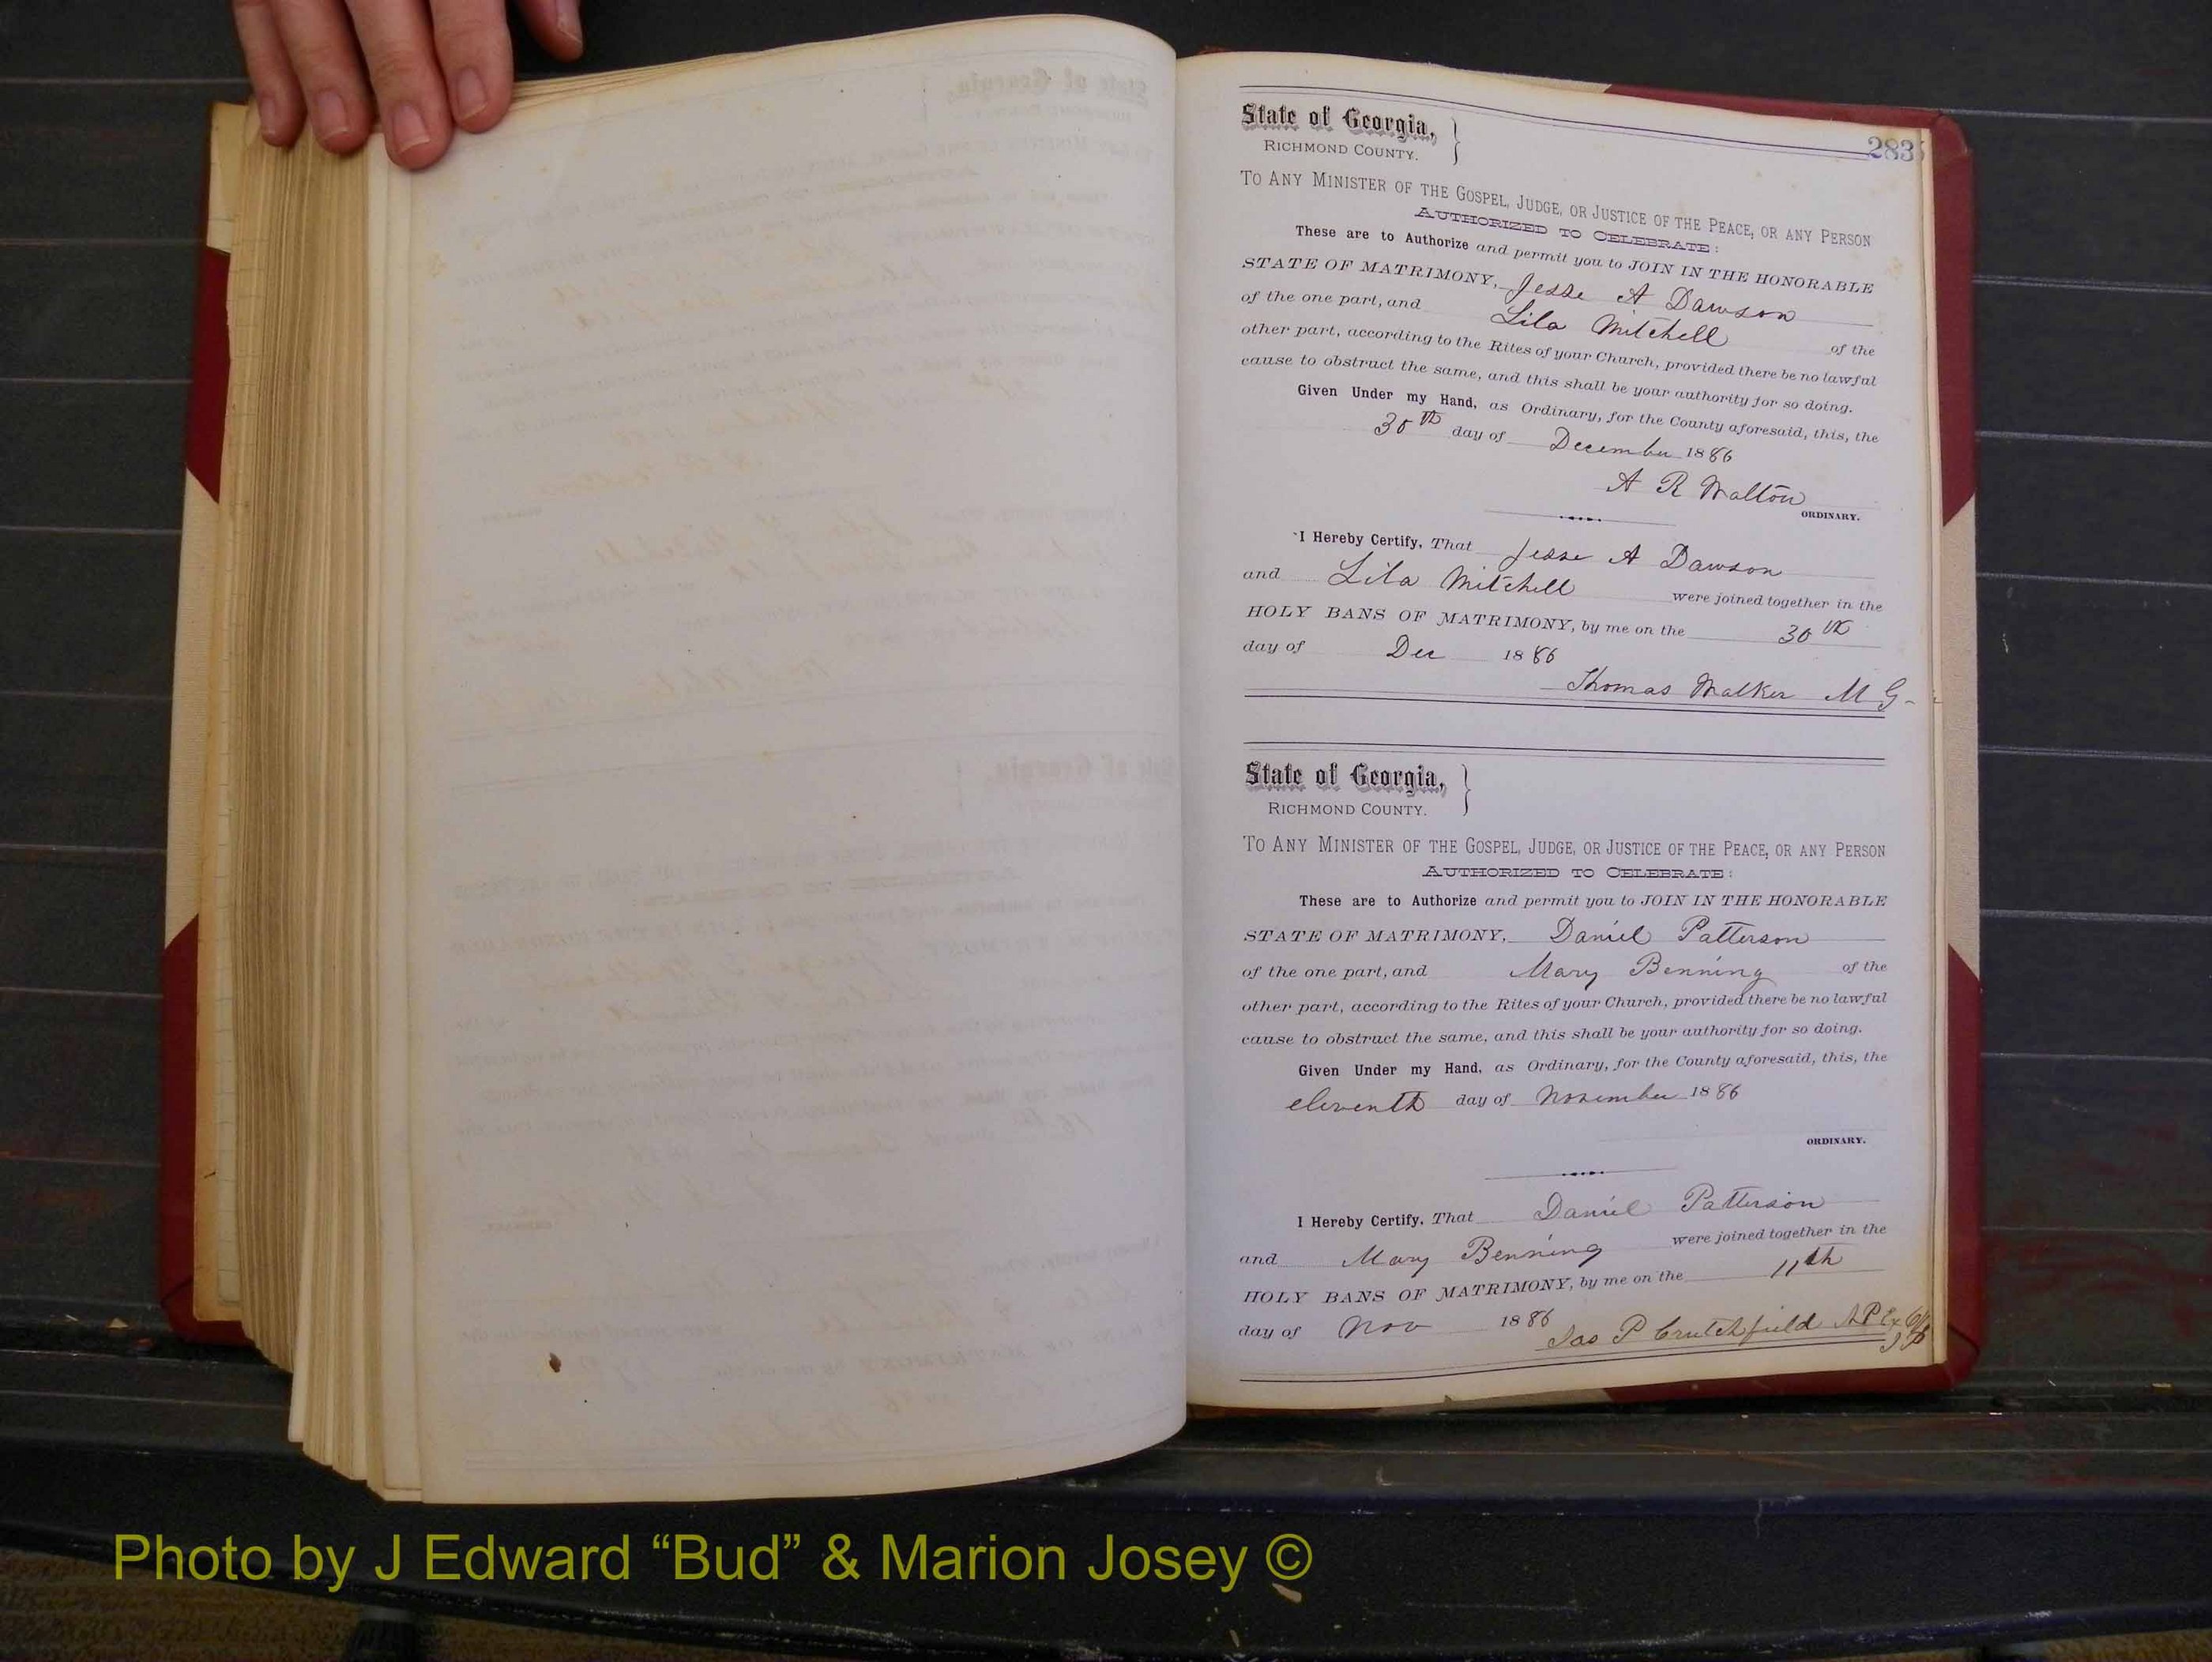 283
State of Georgia,
RICHMOND COUNTY.
TO ANY MINISTER OF THE GOSPEL, JUDGE, OR JUSTICE OF THE PEACE, OR ANY PERSON
AUTHORIZED TO CELEBRATE:
These are to Authorize and permit you to JOIN IN THE HONORABLE
STATE OF MATRIMONY, Jesse A Dawson
of the one part, and Lila Mitchell of the
other part, according to the Rites of your Church, provided there be no lawful
cause to obstruct the same, and this shall be your authority for so doing.
Given Under my Hand, as Ordinary, for the County aforesaid, this, the
30th day of December 1886
A R Walton
ORDINARY.
I Hereby Certify, That Jesse A Dawson
and Lila Mitchell were joined together in the
HOLY BANS OF MATRIMONY, by me on the 30th
day of Dec 1886
Thomas Walker M G
State of Georgia,
RICHMOND COUNTY.
TO ANY MINISTER OF THE GOSPEL, JUDGE, OR JUSTICE OF THE PEACE, OR ANY PERSON
AUTHORIZED TO CELEBRATE:
These are to Authorize and permit you to JOIN IN THE HONORABLE
STATE OF MATRIMONY, Daniel Patterson
of the one part, and Mary Benning of the
other part, according to the Rites of your Church, provided there be no lawful
cause to obstruct the same, and this shall be your authority for so doing.
Given Under my Hand, as Ordinary, for the County aforesaid, this, the
eleventh day of November 1886
ORDINARY.
I Hereby Certify, That Daniel Patterson
and Mary Benning were joined together in the
HOLY BANS OF MATRIMONY, by me on the 11th
day of Nov 1886
Jas P Crutchfield
Photo by J Edward “Bud” & Marion Josey ©